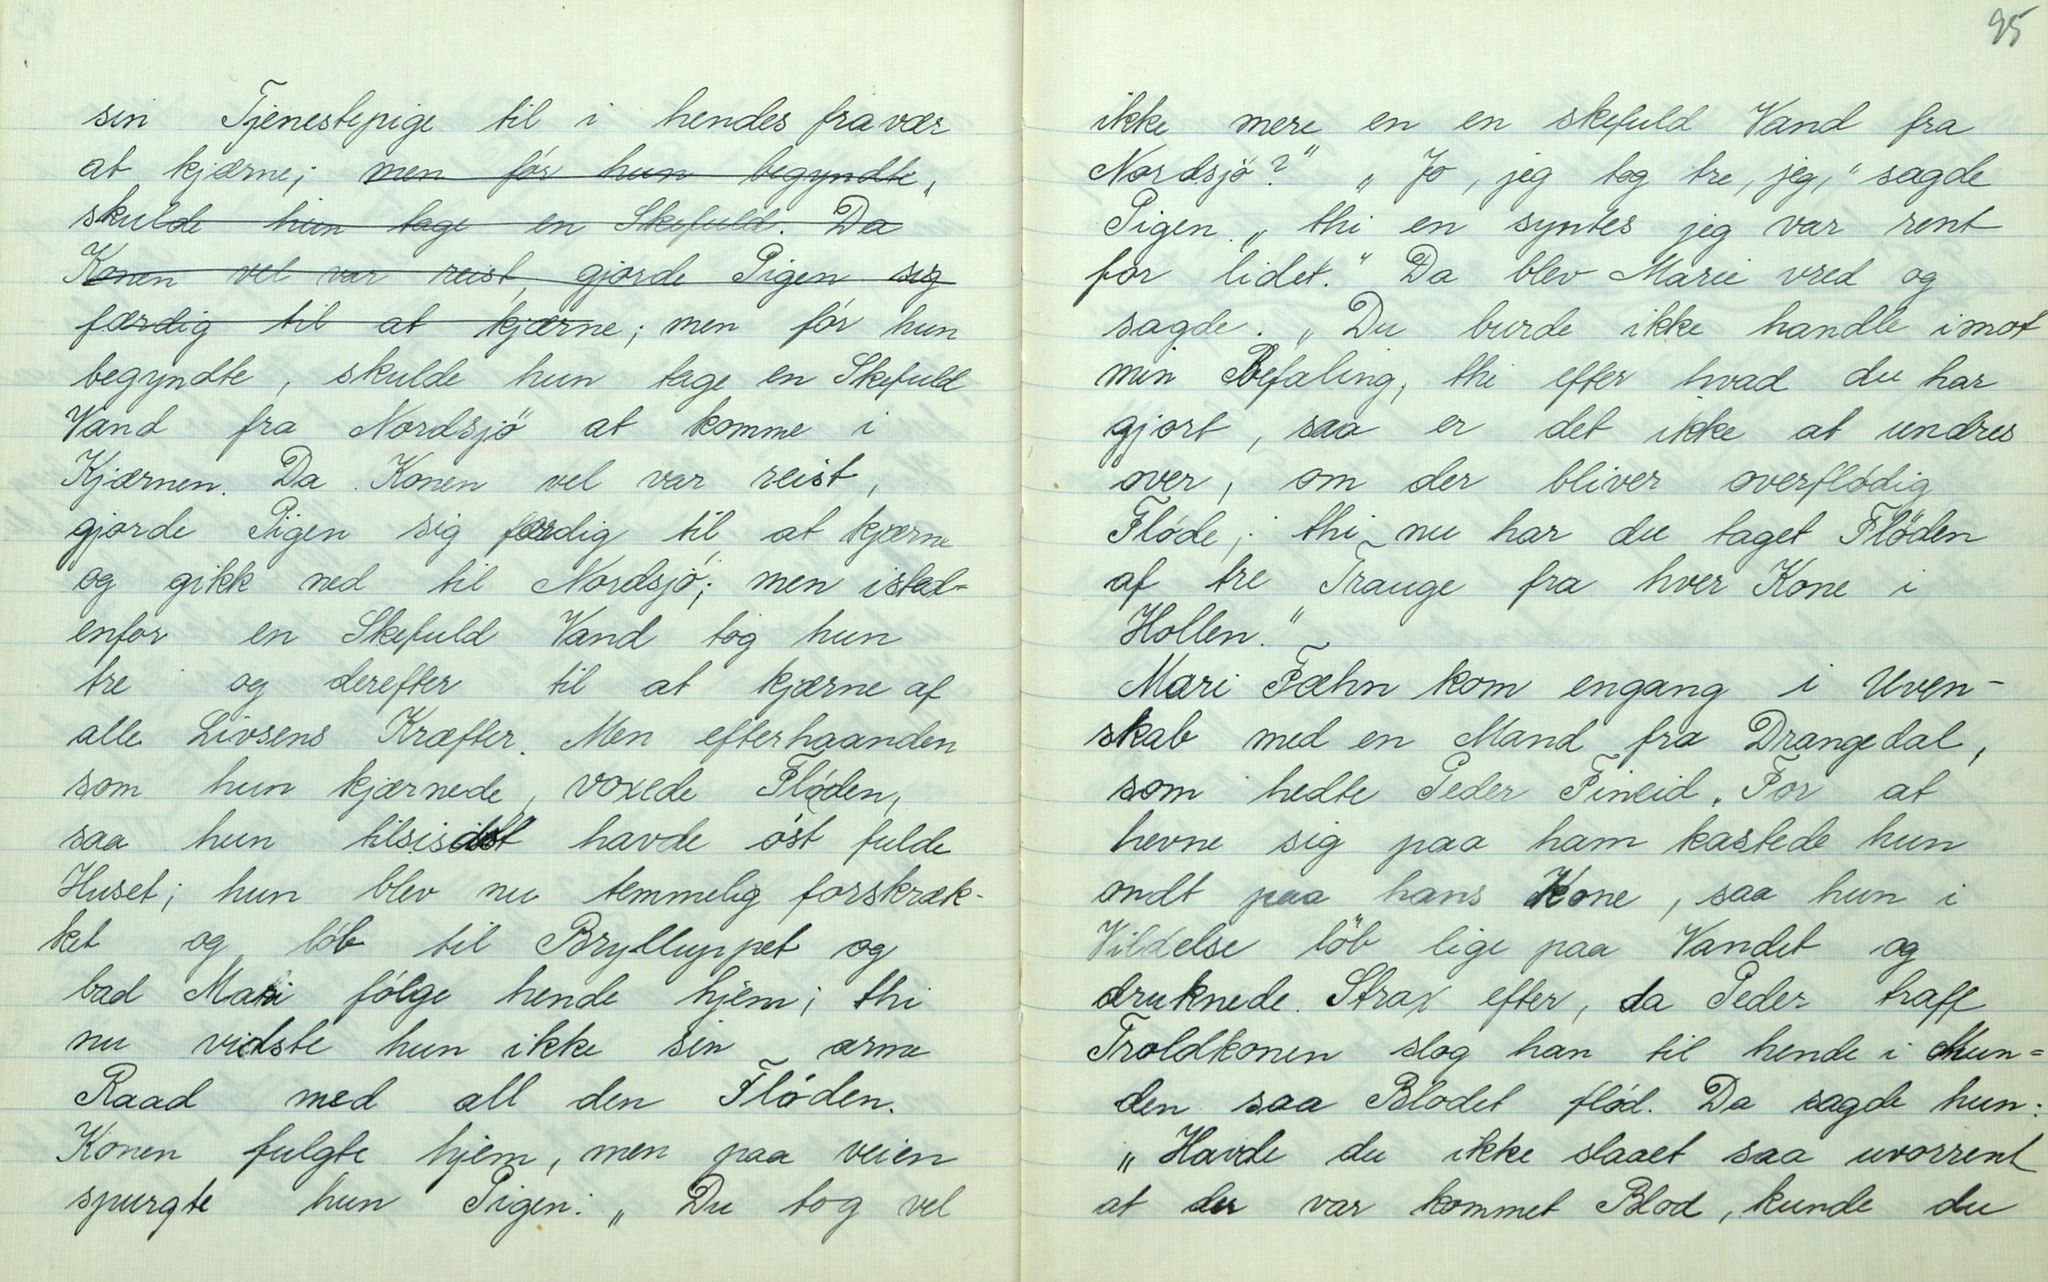 sin Tjenestepige til i hendes fravær
at kjærne; men før hun begyndte,
skulde hun tage en Skefuld. Da
Konen vel var reist, gjorde Pigen sig
færdig til at kjærne; men før hun
begyndte, skulde hun tage en Skefuld
Vand fra Nordsjö at komme i
Kjærnen. Da Konen vel var reist,
gjorde Pigen sig færdig til at kjærne
og gikk ned til Nordsjö; men istad-
enfor en Skefuld Vand tog hun
tre og derefter til at kjærne af
alle Livsens Kræfter. Men efterhaanden
som hun kjærnede, voxede Fløden,
saa hun tilsidst havde øst fulde
Huset; hun blev nu temmelig forskræk-
ket og løb til Brylluppet og
bad Mari følge hende hjem; thi
nu vidste hun ikke sin arme
Raad med all den Fløden.
Konen fulgte hjem, men paa veien
spurgte hun Pigen: „Du tog vel
95
ikke mere en en skefuld Vand fra
Nordsjö?" „Jo, jeg tog tre, jeg," sagde
Pigen „thi en syntes jeg var rent
for lidet." Da blev Marie vred og
sagde. „Du burde ikke handle imot
min Befaling, thi efter hvad du har
gjort, saa er det ikke at undres
over, om der bliver overflødig
Fløde; thi nu har du taget Fløden
af tre Trauge fra hver Kone i
Hollen."
Mari Fæhn kom engang i Uven-
skab med en Mand fra Drangedal,
som hedte Peder Fineid. For at
hevne sig paa ham kastede hun
ondt paa hans Kone, saa hun i
Vildelse löb lige paa Vandet og
druknede. Strax efter, da Peder traff
Troldkonen slog han til hende i Mun=
den saa Blodet flød. Da sagde hun:
„Havde du ikke slaaet saa uvorrent
at der var kommet Blod, kunde du